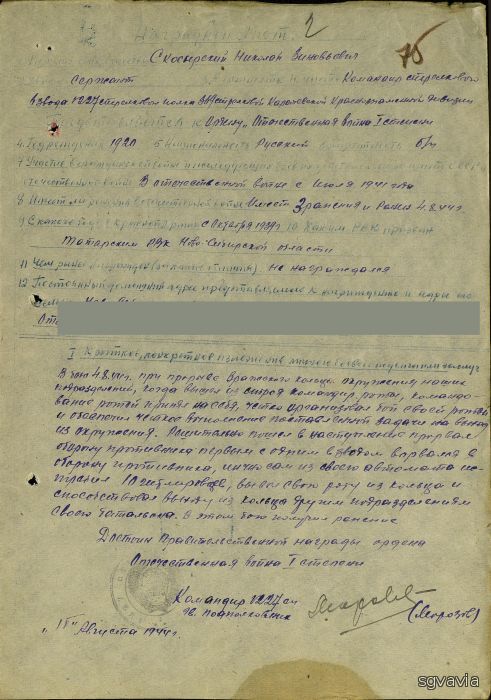 Наградной Лист 2
75
Скосырский Николай Зиновьевич
Сержант Командир стрелкового
взвода 1227 стрелкового полка 369 стрелковой Краснознаменной дивизии
Ордену „Отечественная война I степени
4. Год рождения 1920 5. Национальность Русский б/п
7. Участие в
отечественной войне В отечественной войне с Июля 1941 года
8. Имеет ли ранения в отечественной войне Имеет 3 ранения и Ранен 4.8.44г.
9. С какого года в Красной Армии с Октября 1939г. 10. Каким РВК призван
Татарским РВК Ново-Сибирской области
11. Чем ранее награжден не награждался
12. Постоянный домашний адрес представляемого к награждению и адрес его
I Краткое, конкретное изложение личного боевого подвига или заслуг
В бою 4.8.44г. при прорыве Вражского кольца окружения наших
подразделений, когда вышел из строя командир роты, командо-
вание ротой принял на себя, четко организовал бой своей ротой
и обеспечил четкое выполнение поставленной задачи на выход
из окружения. Решительно пошел в наступление прорвал
оборону противника первым с одним взводом ворвался в
оборону противника, лично сам из своего автомата ис-
требил 10 гитлеровцев, вывел свою роту из кольца и
способствовал выходу из кольца другим подразделениям
своего батальона. В этом бою получил ранение
Достоин Правительственной награды ордена
Отечественная война I степени
Командир 1227 сп
Гв. подполковник (Морозов)
„15" Августа 1944г.
sgvavia